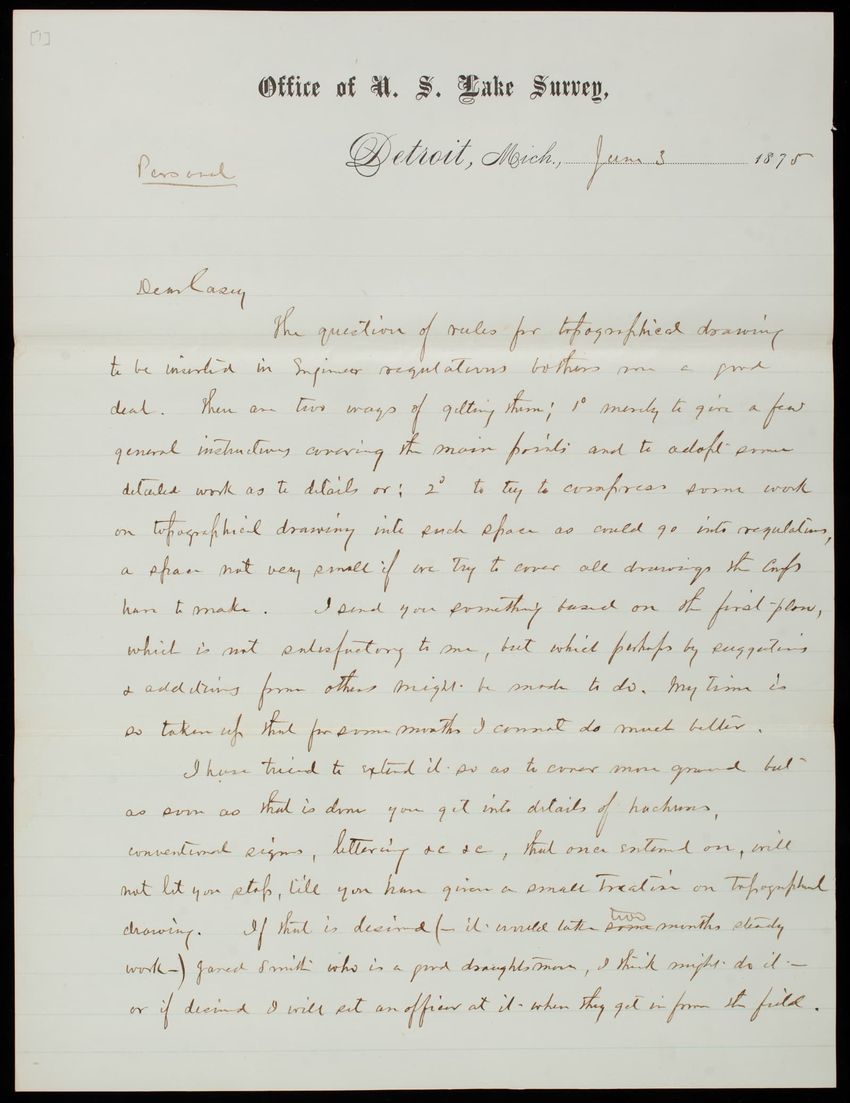 [1]
Office of U. S. Lake Survey,
Detroit, Mich., June 3 1875
Personal
Dear Casey
The question of rules for topographical drawing
to be inserted in Engineer regulations bothers me a good
deal. There are two ways of getting them; 1º merely to give a few
general instructions covering the main points and to adopt some
detailed work as to details or; 2º to try to compress some work
on topographical drawing into such space as could go into regulations,
a space not very small if we try to cover all drawings the Corps
have to make. I send you something based on the first plan,
which is not satisfactory to me, but which perhaps by suggestions
& additions from others might be made to do. My time is
so taken up that for some months I cannot do much better.
I have tried to extend it so as to cover more ground but
as soon as that is done you get into details of hachures,
conventional signs, lettering &c &c, that once entered on, will
not let you stop, till you have given a small treatise on topographical
drawing. If that is desired (– it would take some two months steady
work –) Jared Smith who is a good draughtsman, I think might do it –
or if desired I will set an officer at it when they get in from the field.